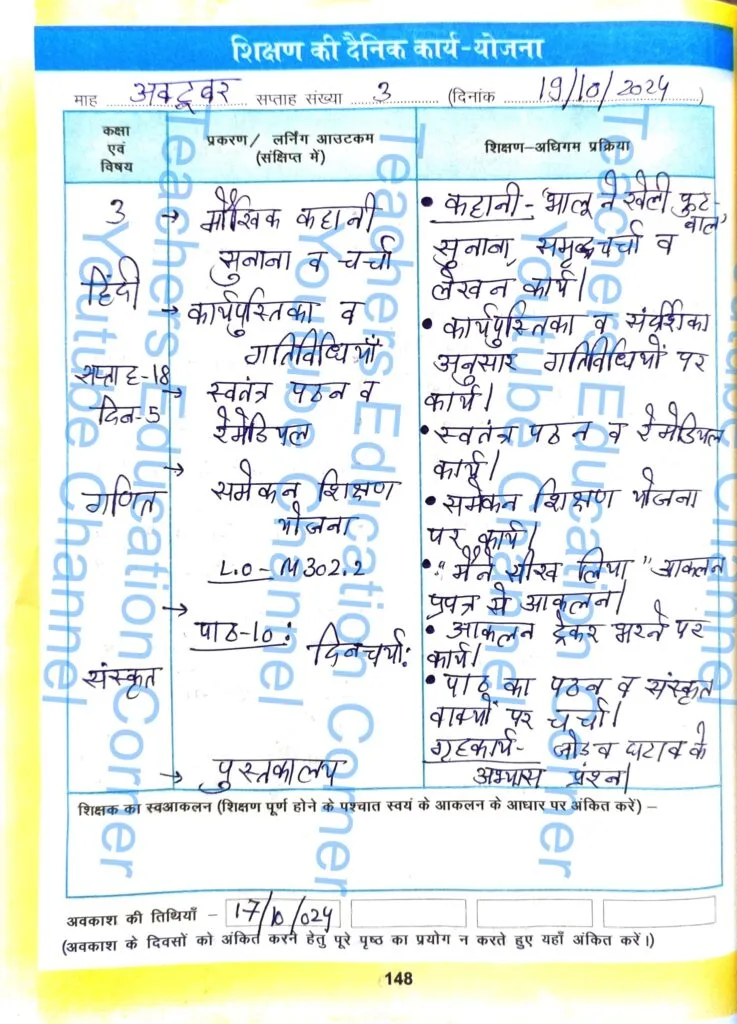 शिक्षण की दैनिक कार्य-योजना
माह अक्टूबर सप्ताह संख्या 3 (दिनांक 19/10/2024)
कक्षा
एवं
विषय
प्रकरण/ लर्निंग आउटकम
(संक्षिप्त में)
शिक्षण-अधिगम प्रक्रिया
3
हिंदी
सप्ताह-18
दिन-5
गणित
संस्कृत
→ मौखिक कहानी
सुनाना व चर्चा
→ कार्यपुस्तिका व
गतिविधियाँ
→ स्वतंत्र पठन व
रेमेडियल
→ समेकन शिक्षण
योजना
L.O - M302.2
→ पाठ-10 :
दिनचर्या:
→ पुस्तकालय
• कहानी- "भालू ने खेली फुट-
बाल"
सुनाना, समूह चर्चा व
लेखन कार्य।
• कार्यपुस्तिका व संदर्शिका
अनुसार गतिविधियों पर
कार्य।
• स्वतंत्र पठन व रेमेडियल
कार्य।
• समेकन शिक्षण योजना
पर कार्य।
• "मैंने सीख लिया" आकलन
प्रपत्र से आकलन।
• आकलन ट्रेकर भरने पर
कार्य।
• पाठ का पठन व संस्कृत
वाक्यों पर चर्चा।
गृहकार्य- जोड़ व घटाव के
अभ्यास प्रश्न।
शिक्षक का स्वआकलन (शिक्षण पूर्ण होने के पश्चात स्वयं के आकलन के आधार पर अंकित करें) –
अवकाश की तिथियाँ – 17/10/024
(अवकाश के दिवसों को अंकित करने हेतु पूरे पृष्ठ का प्रयोग न करते हुए यहाँ अंकित करें।)
148
Teachers Education Corner
Youtube Channel
Teachers Education Corner
Youtube Channel
Teachers Education Corner
Youtube Channel